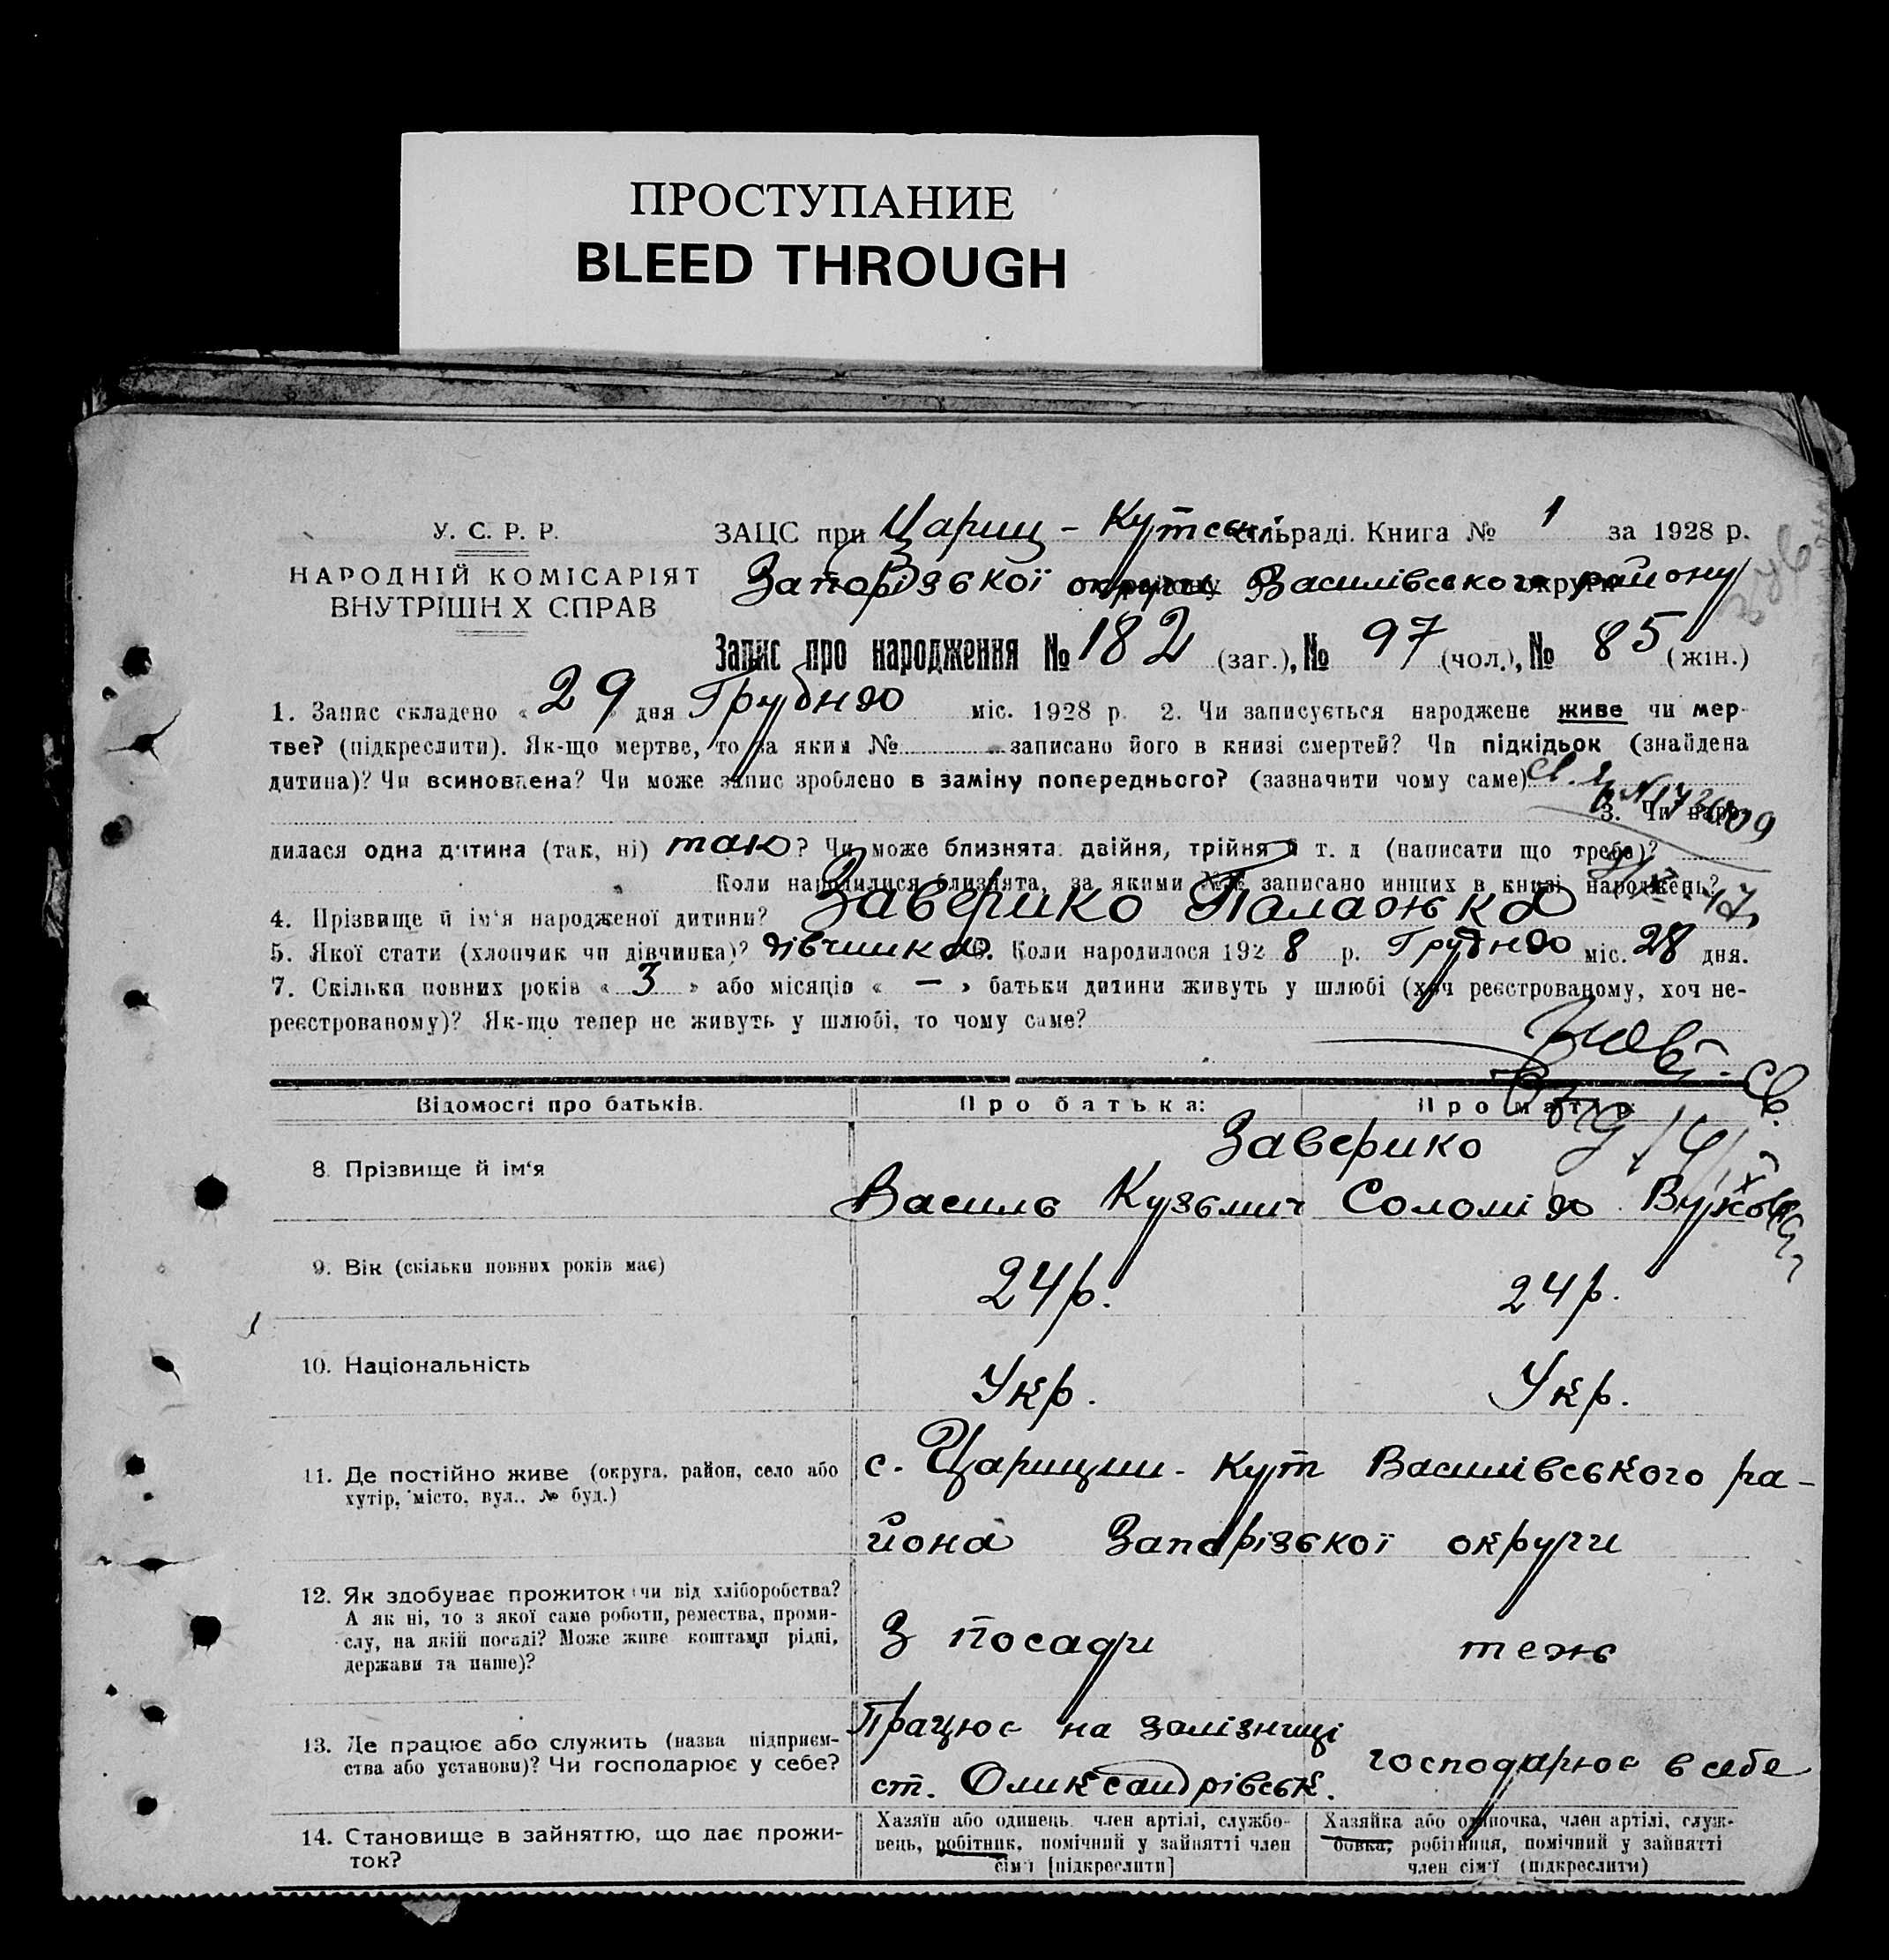 ПРОСТУПАНИЕ
BLEED THROUGH
У. С. Р. Р.
НАРОДНІЙ КОМІСАРІЯТ
ВНУТРІШН Х СПРАВ
ЗАЦС при Цариц-Кутській сільраді. Книга № 1 за 1928 р.
Запорізької округи Василівського району
Запис про народження № 182 (заг.), № 97 (чол.), № 85 (жін.)
1. Запис складено « 29 » дня Грудня міс. 1928 р. 2. Чи записується народжене живе чи мер-
тве? (підкреслити). Як-що мертве, то за яким № записано його в книзі смертей? Чи підкідьок (знайдена
дитина)? Чи всиновлена? Чи може запис зроблено в заміну попереднього? (зазначити чому саме)
3. Чи наро-
дилася одна дитина (так, ні) так? Чи може близнята: двійня, трійня й т. д (написати що треба)?
Коли народилися близнята, за якими №№ записано инших в книзі народжень?
4. Прізвище й ім'я народженої дитини? Заверико Палажка
5. Якої стати (хлопчик чи дівчинка)? дівчинка 6. Коли народилося 1928 р. Грудня міс. 28 дня.
7. Скільки повних років « 3 » або місяців « — » батьки дитини живуть у шлюбі (хоч реєстрованому, хоч не-
реєстрованому)? Як-що тепер не живуть у шлюбі, то чому саме?
Відомості про батьків. Про батька: Про матір:
Заверико
8. Прізвище й ім'я Василь Кузьмич Соломія
9. Вік (скільки повних років має) 24 р. 24 р.
10. Національність Укр. Укр.
11. Де постійно живе (округа, район, село або
хутір, місто, вул., № буд.)
с. Царицин-Кут Василівського ра-
йона Запорізької округи
12. Як здобуває прожиток: чи від хліборобства?
А як ні, то з якої саме роботи, ремества, проми-
слу, на якій посаді? Може живе коштами рідні,
держави та инше)?
З посади теж
13. Де працює або служить (назва підприєм-
ства або установи)? Чи господарює у себе?
Працює на залізниці
ст. Олександрівськ. господарює в себе
14. Становище в зайняттю, що дає прожи-
ток?
Хазяїн або одинець, член артілі, службо-
вець, робітник, помічний у зайнятті член
сім'ї [підкреслити]
Хазяйка або одиночка, член артілі, служ-
бовка, робітниця, помічний у зайнятті
член сім'ї (підкреслити)